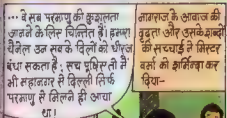 ... वे सब परमाणु की कुशलता
जानने के लिए चिन्तित हैं। हमारा
चैनल उन सबके दिलों को धीरज
बंधा सकता है; सच पूछिए तो मैं
भी महानगर से दिल्ली सिर्फ
परमाणु से मिलने ही आया
था।
नागराज के आवाज की
दृढ़ता और उसके शब्दों
की सच्चाई ने मिस्टर
वर्मा को शर्मिन्दा कर
दिया-